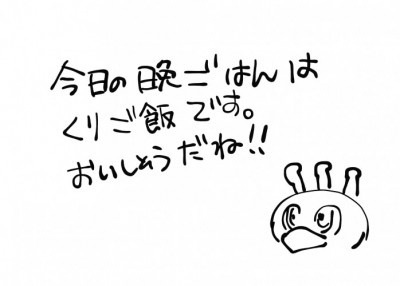 今日の晩ごはんは
くりご飯です。
おいしそうだね!!